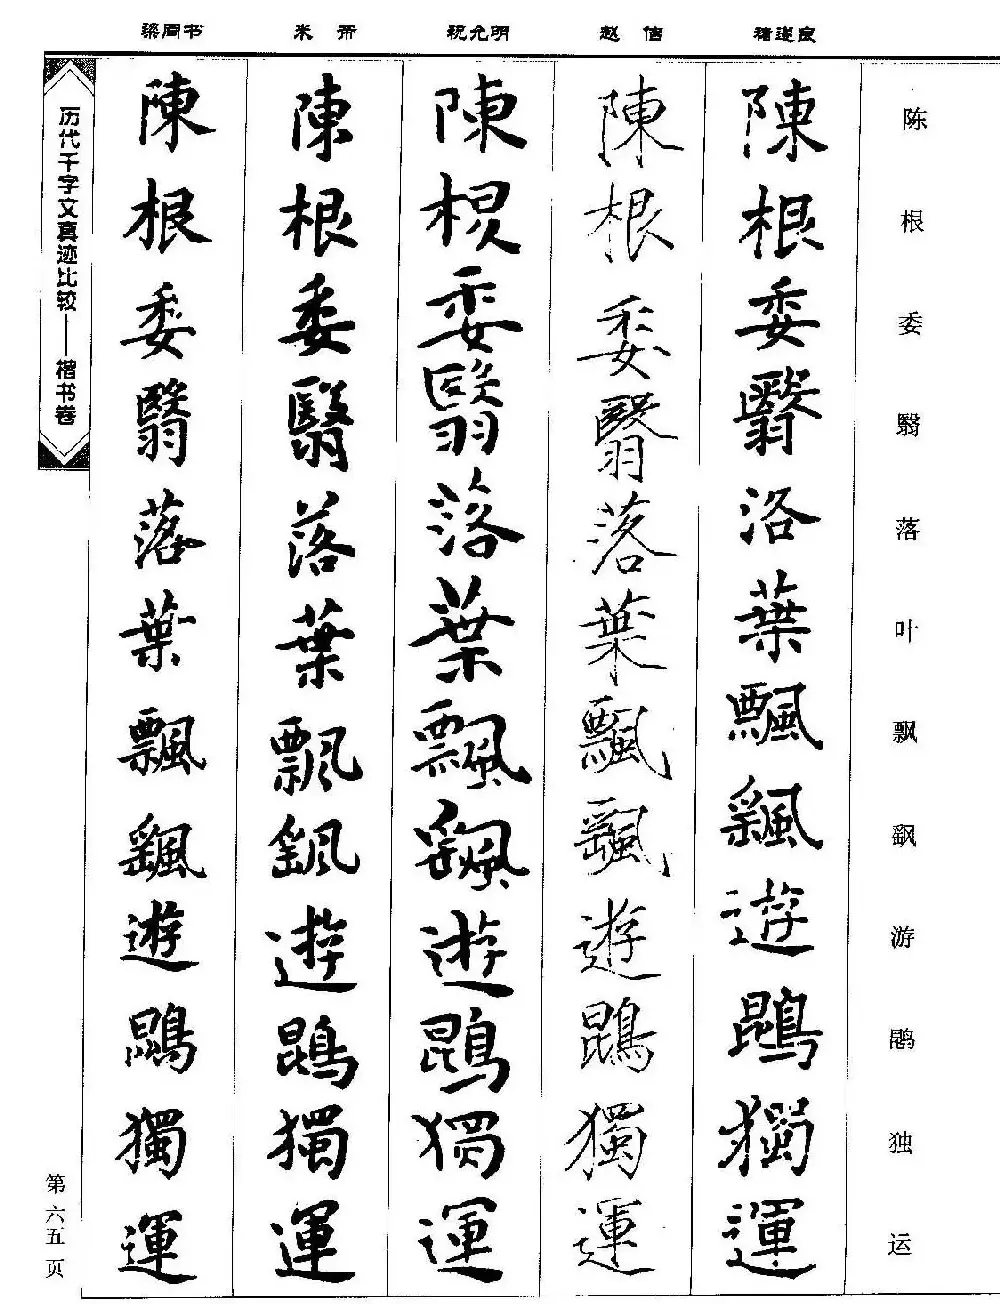 梁同书 米芾 祝允明 赵佶 褚遂良
陈根委翳落叶飘飖游鹍独运
陳根委翳洛葉飄颻遊鵾獨運
陳根委翳落葉飄颻遊鵾獨運
陳根委翳落葉飄颻遊鵾獨運
陳根委翳落葉飄颻遊鵾獨運
陳根委翳落葉飄颻遊鵾獨運
历代千字文真迹比较——楷书卷
第六五页